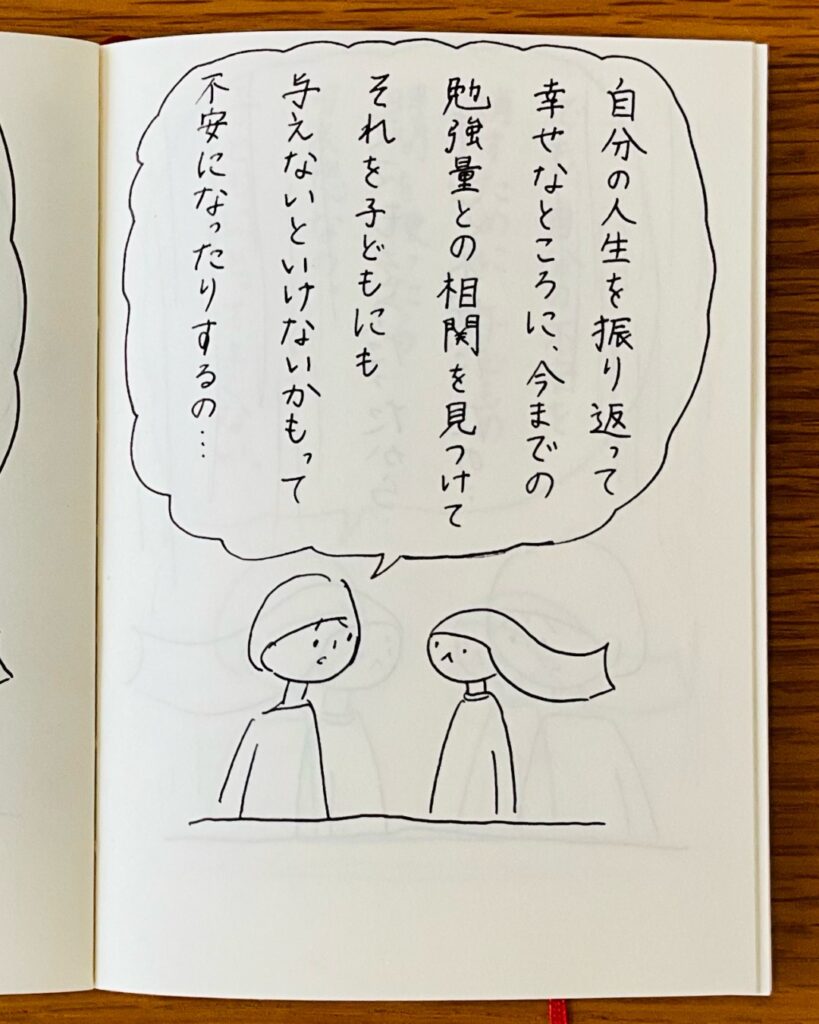 自分の人生を振り返って
幸せなところに、今までの
勉強量との相関を見つけて
それを子どもにも
与えないといけないかもって
不安になったりするの…